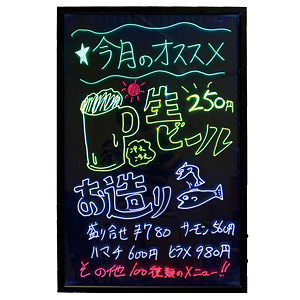 ★今月のオススメ
生ビール 250円
お造り
盛り合せ ¥780 サーモン 560円
ハマチ 600円 ヒラメ 980円
その他 100種類のメニュー!!